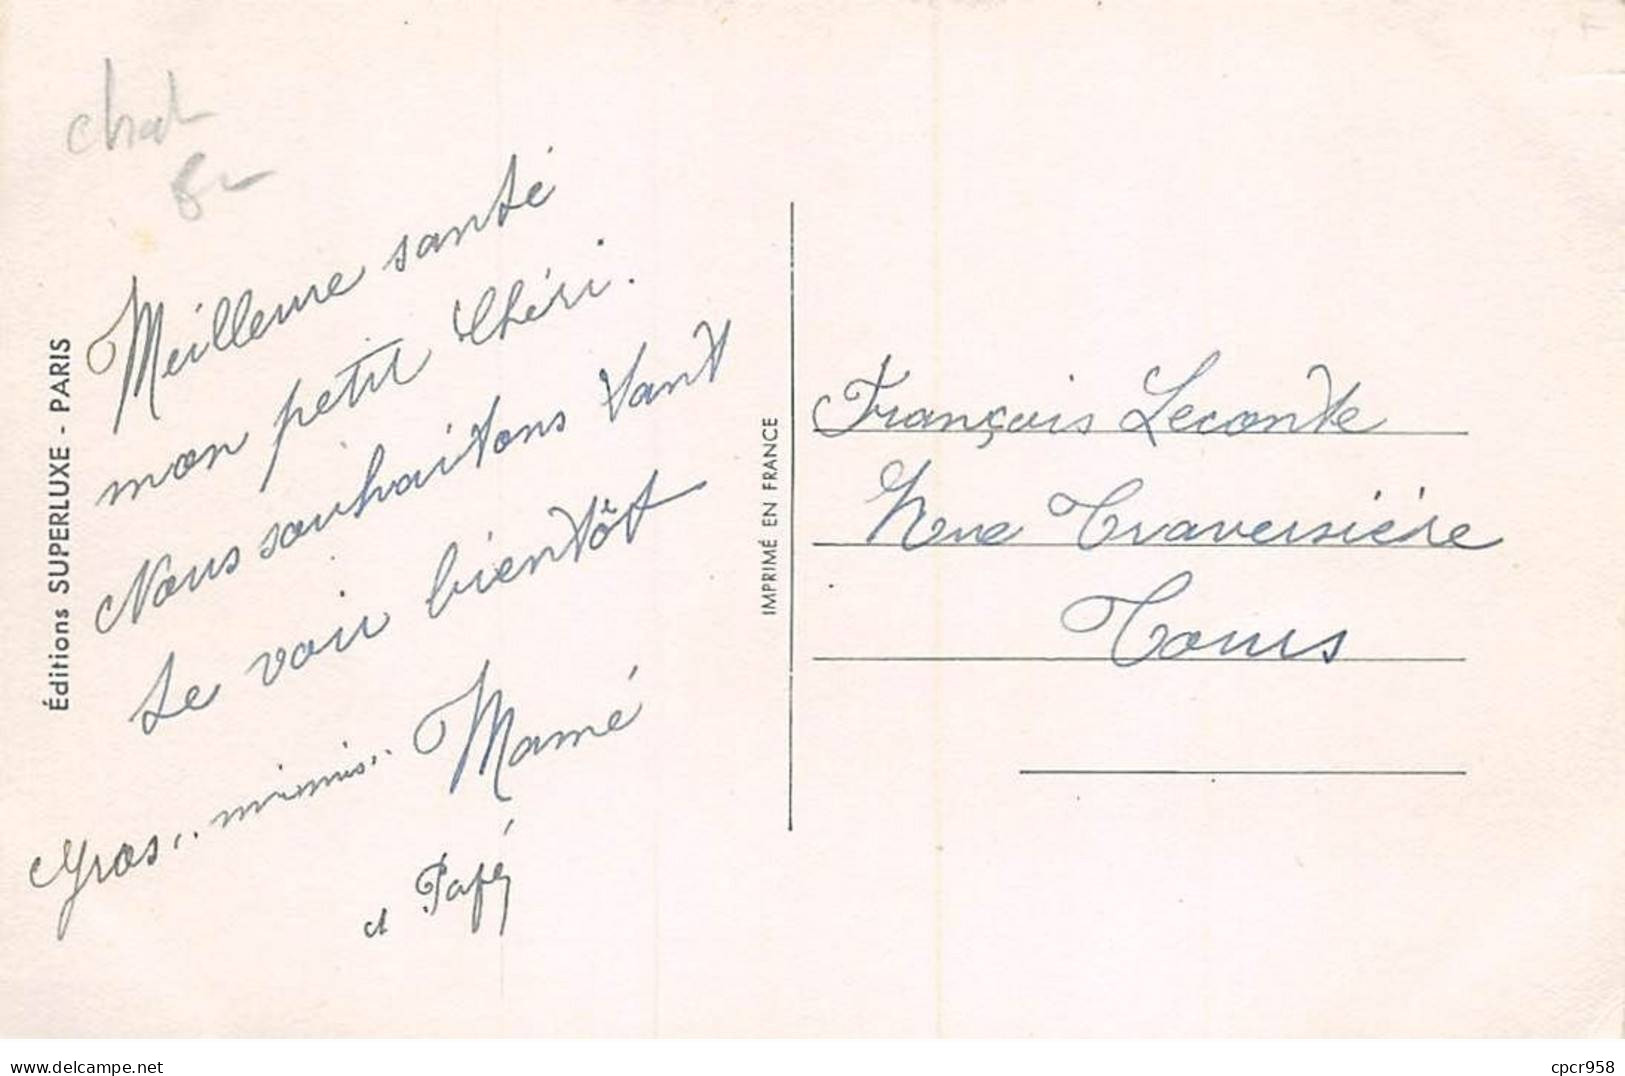 chat
Meilleure santé
mon petit Chéri.
Nous souhaitons tant
te voir bientôt
Gros.. mimis.. Mamé
et Papé
Éditions SUPERLUXE - PARIS
IMPRIMÉ EN FRANCE
François Leconte
Rue Traversière
Tours
delcampe.net
cpcr958